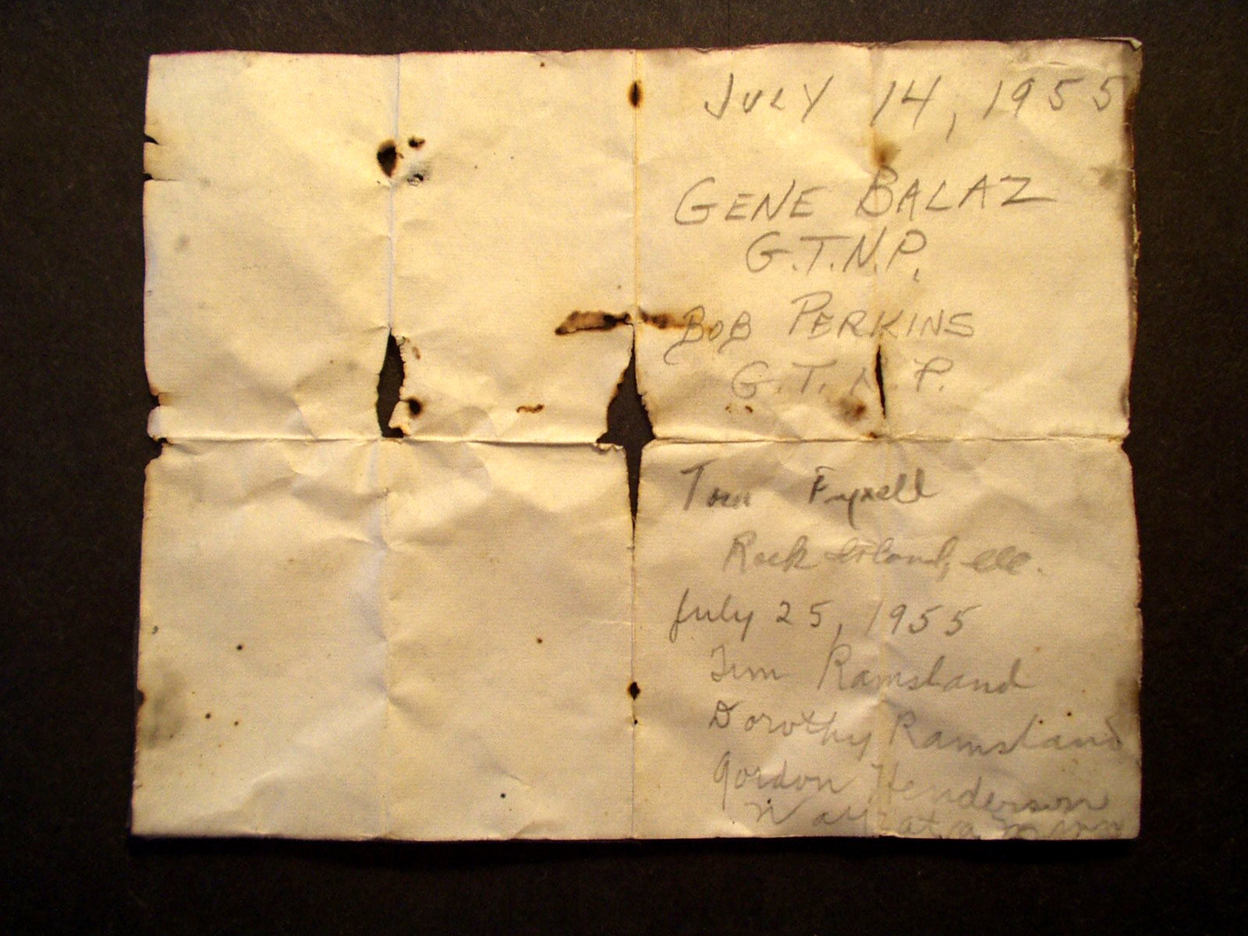 JULY 14, 1955
GENE BALAZ
G.T.N.P.
BOB PERKINS
G.T.N.P.
Tom Fyxell
Rock Island, Ill.
July 25, 1955
Jim Ramsland
Dorothy Ramsland
Gordon Henderson
Wayzata Minn